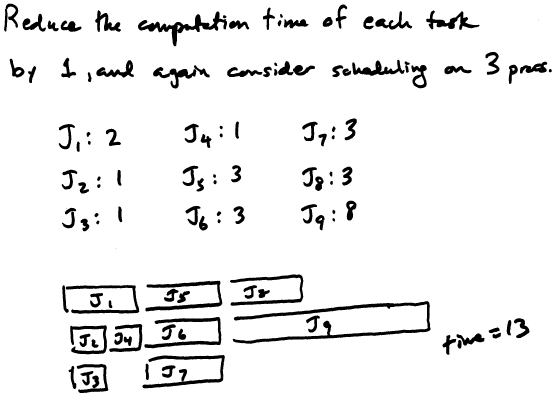 Reduce the computation time of each task
by 1, and again consider scheduling on 3 procs.
J1: 2 J4: 1 J7: 3
J2: 1 J5: 3 J8: 3
J3: 1 J6: 3 J9: 8
J1 J5 J8
J2 J4 J6 J9
time = 13
J3 J7